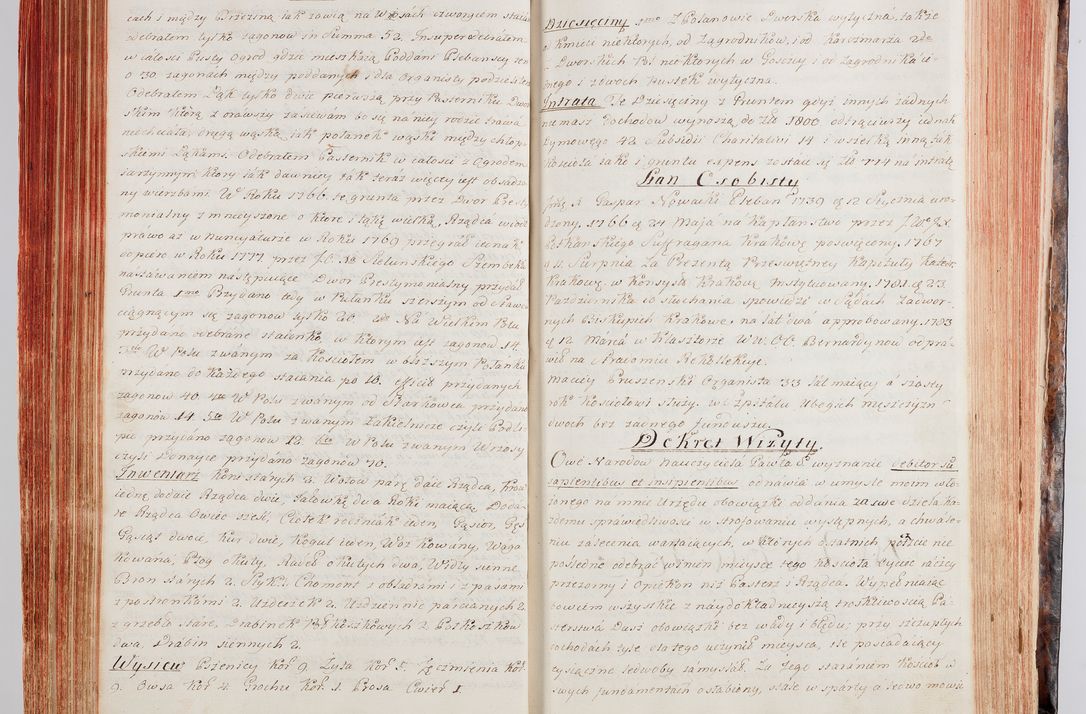 cach i między Brzeziną tak zową na Włósach czwartem staia
odebrałem tylko zagonow in Summa 52. Insuper odebrałem
w całości Pusty Ogrod gdzie mieszkaią Poddani Plebańscy ten
o 30 zagonach między poddanych i dla Organisty podzielił
Odebrałem Łąk tylko dwie pierwszą przy Pasterniku Dwor
skim którą z orawszy zasiewam bo się na niey rodzić trawa
niechciała, drugą wąską iak połanek wąski między chłop
skiemi Łąkami. Odebrałem Pasternik w całości z Ogrodem
iarzynnym, ktory iak dawniey tak teraz więcey iest obsadzo
ny wierzbami. W Roku 1766 te grunta przez Dwor Presty
monialny zmnieyszone o ktore i łąkę wielką, Rządca wiodł
prawo aż w Nuncyaturze w Roku 1769 przegrał iednak
dopiero w Roku 1777 przez J. O. Xa Sielunskiego Szembeka
nastawaniem następuiące Dwor Prestymonialny przydał
Grunta 1mo Przydano tedy w Polanku szerszym od Pława
ciągnącym się zagonow tylko 26. 2do Na Wielkim Polu
przydano odebrane staionko w ktorym iest zagonow 14.
3tio W Polu zwanym za Kościołem w obszszym Połanku
przydano do każdego staiania po 10. efficit przydanych
zagonow 40 4to W Polu zwanym od Siarkowca przydano
zagonów 14 5to W Polu zwanym Zakielnicze czyli Podli
pie przydano zagonow 12 6to W Polu zwanym Wrzosy
czyli Donayce przydano zagonow 10.
Inwentarz Koni starych 2. Wołow parę daie Rządca, Krow
iednę dodaie Rządca dwie Jałowkę dwa Roki maiącą Doda
ie Rządca Owiec sześć, Ciołek roczniak ieden, Gąsior, Gęś
Gąsiąt dwoie, Kur dwie, Kogut ieden, Woz Kowany, Waga
kowana, Pług okuty, Radeł okutych dwa, Widły sienne,
Bron starych 2. Szyk 1. Chomont z obsiorami i z pasami
z postronkami 2. Uzdeczek 2. Uzdziennic parcianych 2
zgrzebło stare, Drabinek Półkoszkowych 2 Półkoszków
dwa, Drabin siennych 2.
Wysiew Pszenicy Kor. 9. Żyta Kor. 5. Jęczmienia Kor.
9. Owsa Kor. 4. Grochu Kor. 1. Prosa Cwierć 1.
Dziesięciny 1mo Z Polanowic Dworska wytyczna, także
z Kmieci niektórych, od Zagrodników, i od Karczmarza 2do
Z Dworskich Pol niektórych w Goszczy i od Zagrodnika ie
dnego i z dwoch pustek wytyczna.
Intrata Ze Dziesięciny z Gruntem gdyż innych żadnych
niemasz dochodow wynoszą do Złł 1800 odtrąciwszy iednak
dymowego 42 Subsidii Charitativi 14 i wszelką inną tak
kościoła iako i gruntu expens zostaie się Złł 774 na intratę
Stan Osobisty
Jmć X Gaspar Nowacki Pleban 1739 d 12 Stycznia uro
dzony, 1766 d 24 Maja na Kapłanstwo przez J. W. J. X.
Potkanskiego Suffragana Krakowg poswięcony, 1767
d 11. Sierpnia za Prezentą Przeswietney Kapituły Kated:
Krakowg, w Konsyst: Krakowg. Instytuowany, 1781 d 23
Pazdziernika do słuchania spowiedzi w Sądach Zadwor
nych Biskupich Krakowg. na lat dwa approbowany, 1783
d 12 Marca w Klasztorze W W. O O. Bernardynow odpra
wił na Stradomiu Rekollekcye.
Maciey Pruszenski Organista 33 lat maiący a szosty
rok Kosciołowi służy. W Szpitalu Ubogich męszczyzn
dwoch bez żadnego Funduszu.
Dekret Wizyty.
Owe Narodow nauczyciela Pawła S. wyznanie debitor su
sapientibus et insipientibus odnawia w umyśle moim wło
żonego na mnie Urzędu obowiązki oddania za swe dzieła ka
żdemu sprawiedliwości w strofowaniu występnych, a chwale
niu zalecenia wartaiących, w których ostatnich poczcie nie
pośledne odebrać winien mieysce tego Kościoła życie raczey
przezorny i Opiekun niż Pasterz i Rządca. Wypełniaiąc
bowiem wszystkie z naydokładnieyszą troskliwością Pa
sterstwa Dusz obowiązki bez wady i błędu, przy szczupłych
dochodach tyle dla tego uczynił mieysca, ile posiadaiący
tysiączne ledwoby zamyslał. Za Jego staraniem Kościoł w
swych fundamentach osłabiony, stale wsparty a ledwo mówić